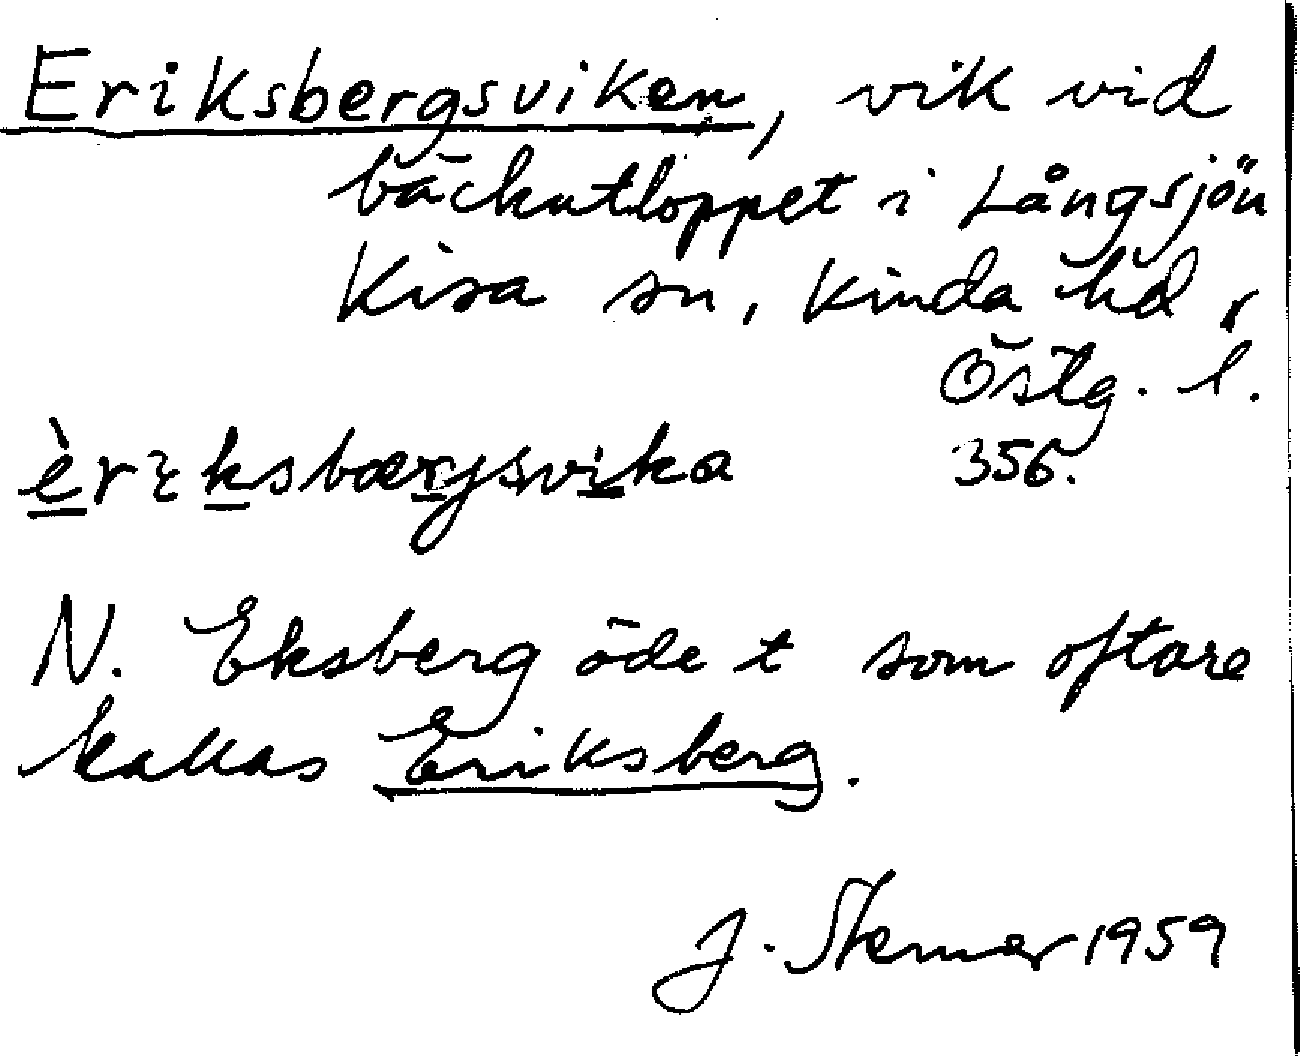 Eriksbergsviken, vik vid
bäckutloppet i Långsjön
Kisa sn, Kinda hd,
Östg. l.
èrıksbærjsvika 356.
N. Eksberg öde t som oftare
kallas Eriksberg.
J. Sterner 1959